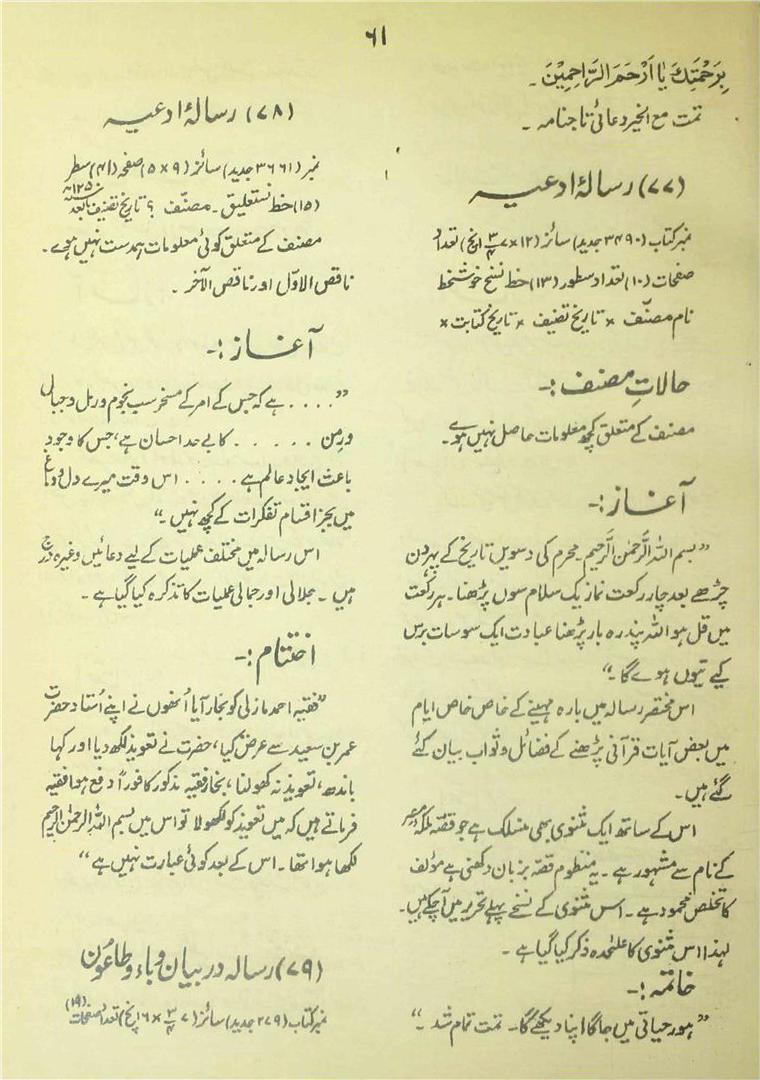 ۶۱
بِرَحْمَتِكَ يَا اَرْحَمَ الرَّاحِمِيْنَ ۔
تمت مع الخیر دعائ تاجنامہ ۔
(۷۷) رسالۂ ادعیہ
نمبر کتاب (۳۴۹۰ جدید) سائز (۱۲ × ۷ ۳/۴ انچ) تعداد
صفحات (۱۰) تعداد سطور (۱۳) خط نسخ خوشخط
نام مصنّف × تاریخ تصنیف × تاریخ کتابت ×
حالاتِ مصنف :-
مصنف کے متعلق کچھ معلومات حاصل نہیں ہوے۔
آغاز :-
”بسم اللہ الرَّحمٰن الرَّحیم۔ محرم کی دسویں تاریخ کے پہر دن
چڑھے بعد چار رکعت نماز یک سلام سوں پڑھنا۔ ہر رکعت
میں قل ہو اللہ پندرہ بار پڑھنا عبادت ایک سو سات برس
کیے تیوں ہوے گا۔“
اس مختصر رسالہ میں بارہ مہینے کے خاص خاص ایام
میں بعض آیات قرآنی پڑھنے کے فضائل و ثواب بیان کئے
گئے ہیں۔
اس کے ساتھ ایک مثنوی بھی منسلک ہے جو قصّہ ملکہ مصر
کے نام سے مشہور ہے ۔ یہ منظوم قصہ بزبان دکھنی ہے مؤلف
کا تخلص محمود ہے ۔ اس مثنوی کے نسخے پہلے تحریر میں آچکے ہیں۔
لہذا اس مثنوی کا علٰحدہ ذکر کیا گیا ہے ۔
خاتمہ :-
”ہور حیاتی میں جاگا اپنا دیکھے گا۔ تمت تمام شد ۔“
(۷۸) رسالۂ ادعیہ
نمبر (۳۶۶۱ جدید) سائز (۹ × ۵) صفحہ (۴۱) سطر
(۱۵) خط نستعلیق ۔ مصنّف ؟ تاریخ تصنیف مابعد ۱۲۵۰ھ
مصنف کے متعلق کوئی معلومات ہمدست نہیں ہوے ۔
ناقص الاوّل اور ناقص الآخر ۔
آغاز :-
”. . . . ہے کہ جس کے امر کے مسخر سب نجوم و رمل و جبال
و زمن . . . . . کا بے حد احسان ہے، جس کا وجود
باعث ایجاد عالم ہے . . . . اس وقت میرے دل و دماغ
میں بجز اقسام تفکرات کے کچھ نہیں ۔“
اس رسالہ میں مختلف عملیات کے لیے دعائیں وغیرہ درج
ہیں ۔ جلالی اور جمالی عملیات کا تذکرہ کیا گیا ہے ۔
اختتام :-
”فقیہ احمد مازلی کو بخار آیا اُنھوں نے اپنے اُستاد حضرت
عمر بن سعید سے عرض کیا، حضرت نے تعویذ لکھ دیا اور کہا
باندھ، تعویذ نہ کھولنا، بخار فقیہ مذکور کا فوراً دفع ہوا فقیہ
فرماتے ہیں کہ میں تعویذ کو لکھولا تو اس میں بسم اللہ الرحمٰن الرحیم
لکھا ہوا تھا ۔ اس کے بعد کوئی عبارت نہیں ہے“
(۷۹) رسالہ در بیان وباء و طاعُون
نمبر کتاب (۲۷۹ جدید) سائز (۷ ۳/۴ × ۶ انچ) تعداد صفحات (۱۹)